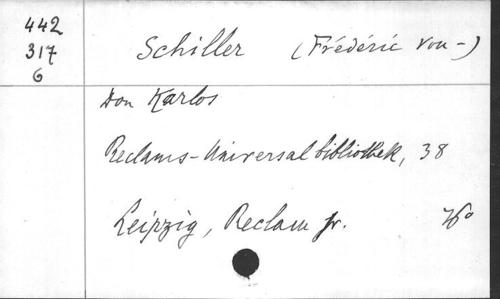 442
317
6
Schiller (Frédéric von-)
Don Karlos
Reclams-Universalbibliothek, 38
Leipzig, Reclam jr.